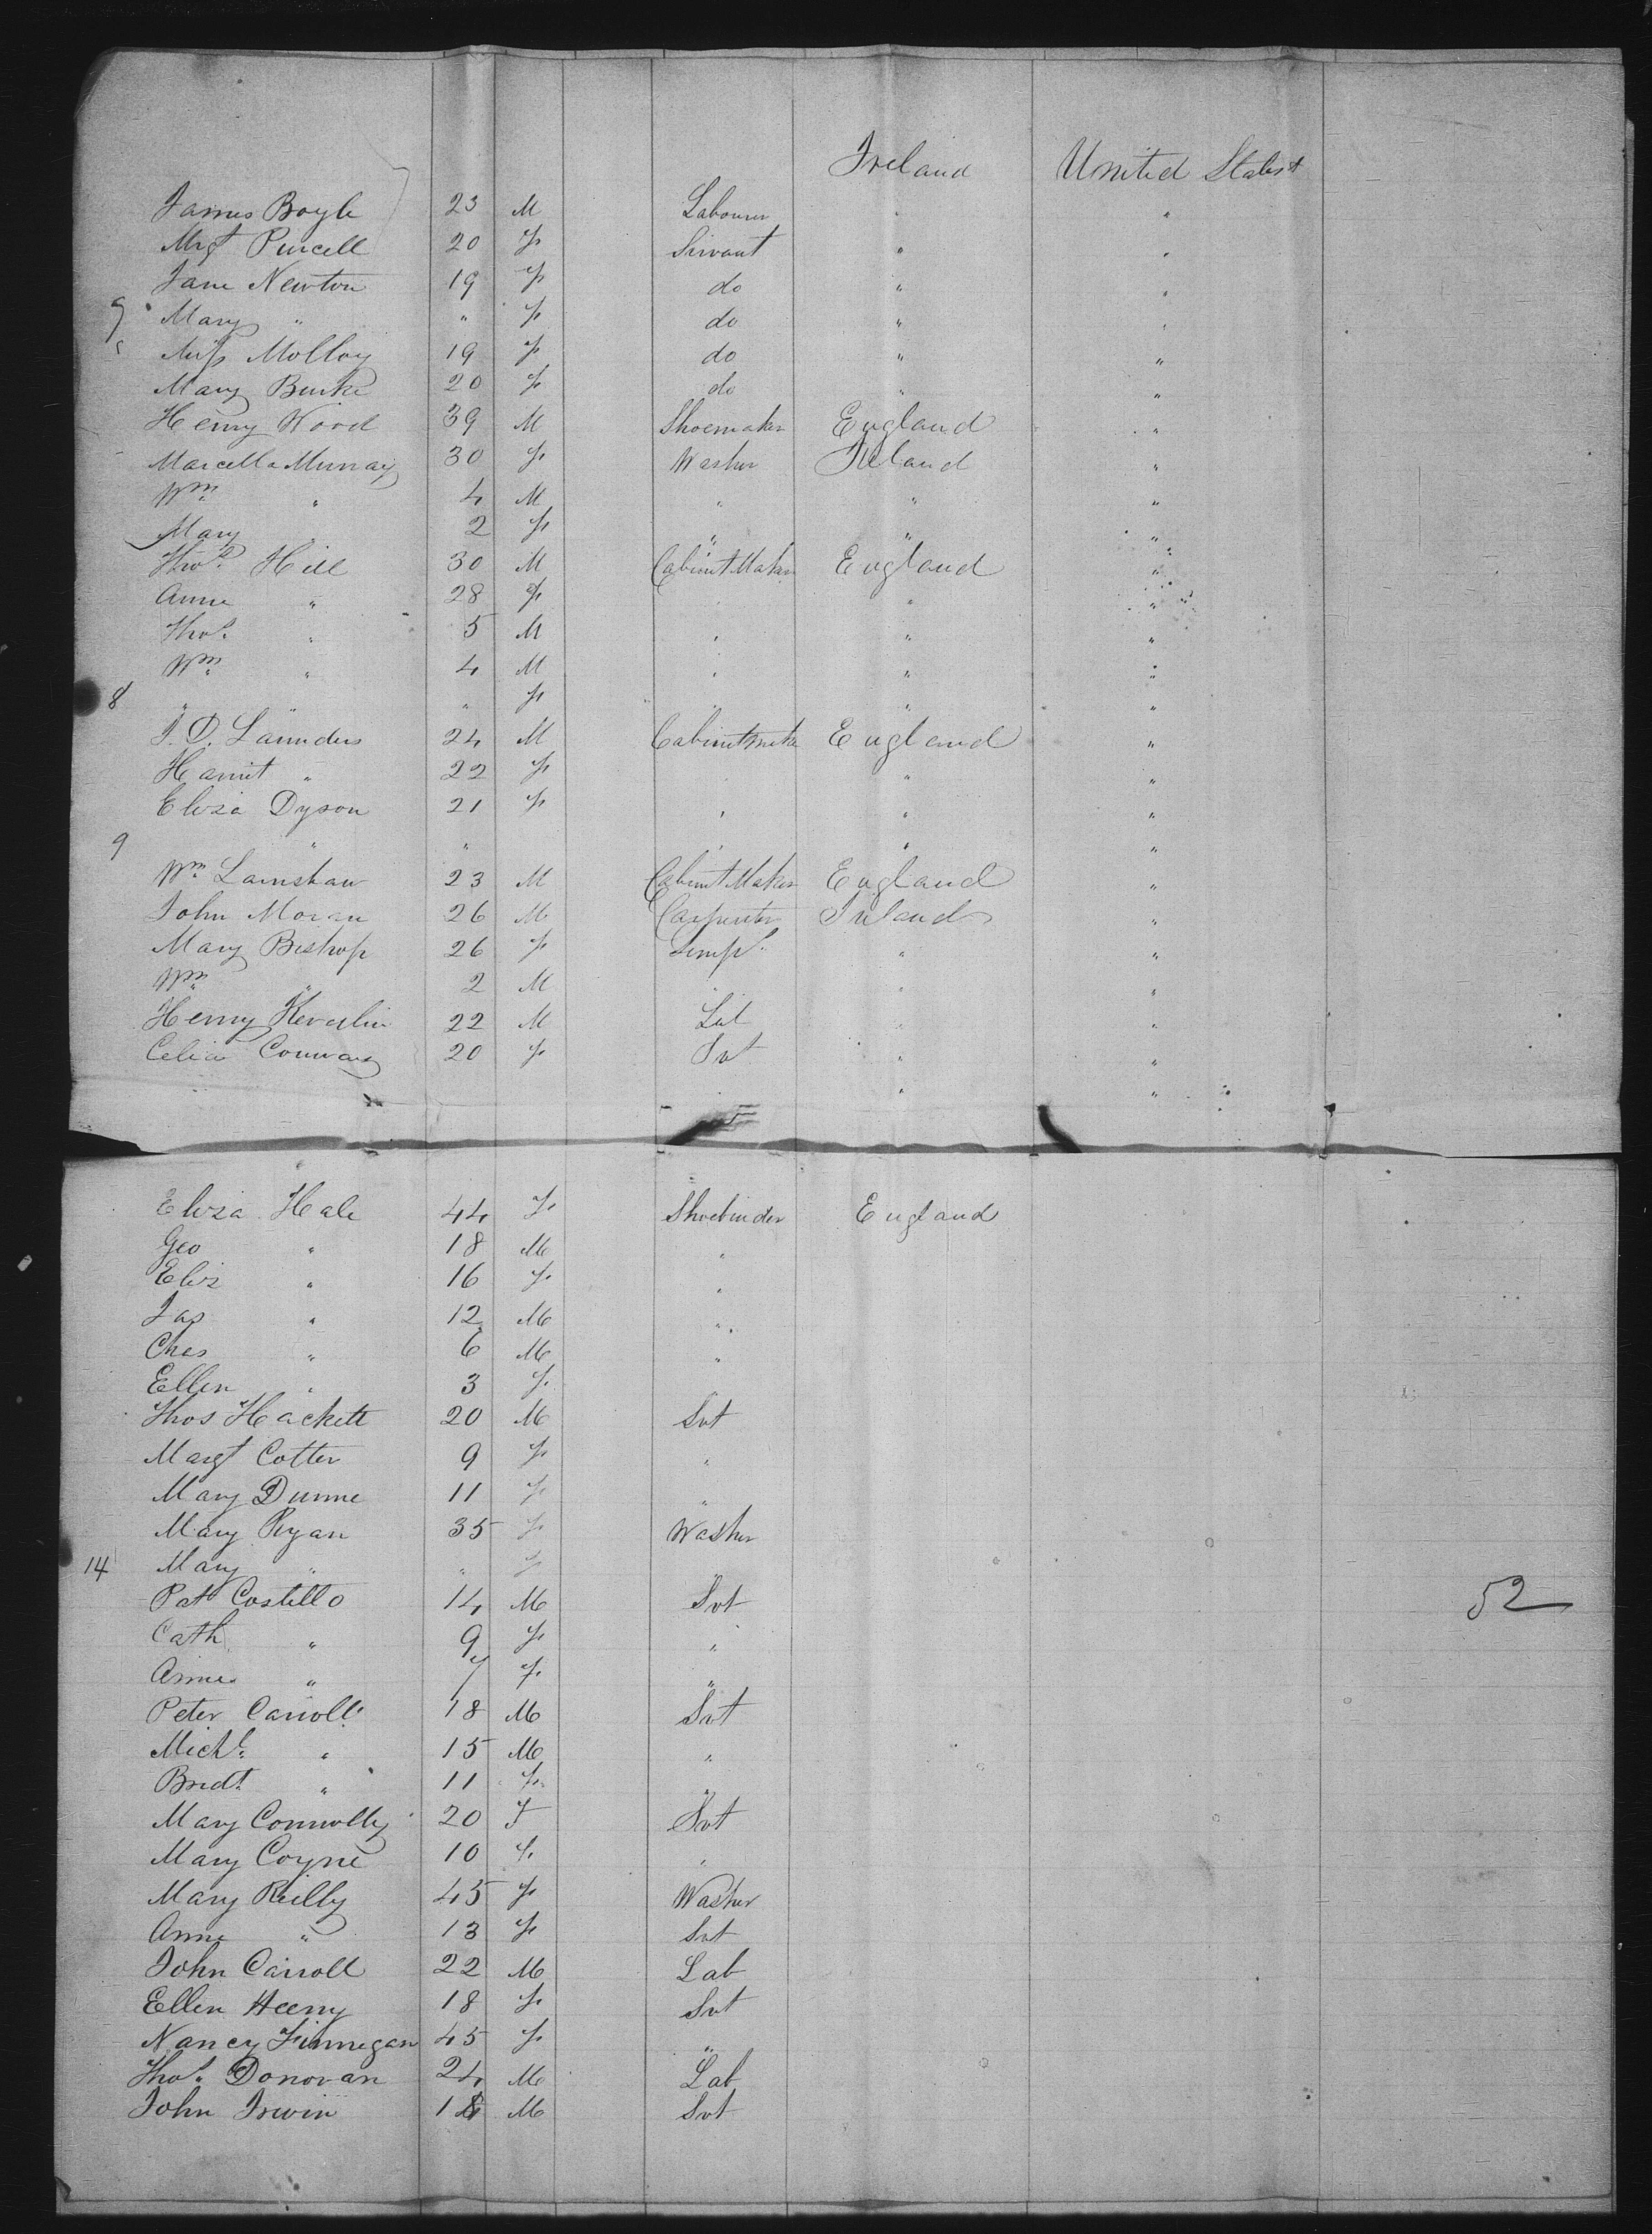 Ireland United States
James Boyle 23 M Labourer " "
Mrgt Purcell 20 F Servant " "
Jane Newton 19 F do " "
9 Mary " " F do " "
Miss Molloy 19 F do " "
Mary Burke 20 F do " "
Henry Wood 39 M Shoemaker England "
Marcella Murray 30 F Washer Ireland "
Wm " 4 M " " "
Mary 2 F " " "
Thos. Hill 30 M Cabinet Maker England "
Anne " 28 F " " "
Thos. " 5 M " " "
Wm " 4 M " " "
8 " " " F " " "
J. D. Saunders 24 M Cabinetmaker England "
Harriet " 22 F " " "
Eliza Dyson 21 F " " "
9 " " " " "
Wm 23 M Cabinet Maker England "
John Moran 26 M Carpenter Ireland "
Mary Bishop 26 F " "
Wm " 2 M " " "
Henry 22 M Lab " "
Celia Conway 20 F Svt " "
" " "
Eliza Hale 44 F Shoebinder England
Geo " 18 M "
Eliz " 16 F "
Jas " 12 M "
Chas " 6 M "
Ellen " 3 F
Thos Hackett 20 M Svt
Margt Cotter 9 F "
Mary Dunne 11 F "
Mary Ryan 35 F Washer
14 Mary " " F
Pat Costello 14 M Svt 52
Cath " 9 F "
Anne " 7 F "
Peter Carroll 18 M Svt
Michl. " 15 M "
Bridt. " 11 F "
Mary Connolly 20 F Svt
Mary Coyne 10 F "
Mary Reilly 45 F Washer
Anne " 13 F Svt
John Carroll 22 M Lab
Ellen Heeny 18 F Svt
Nancy Finnegan 45 F "
Thos. Donovan 24 M Lab
John Irwin 18 M Svt